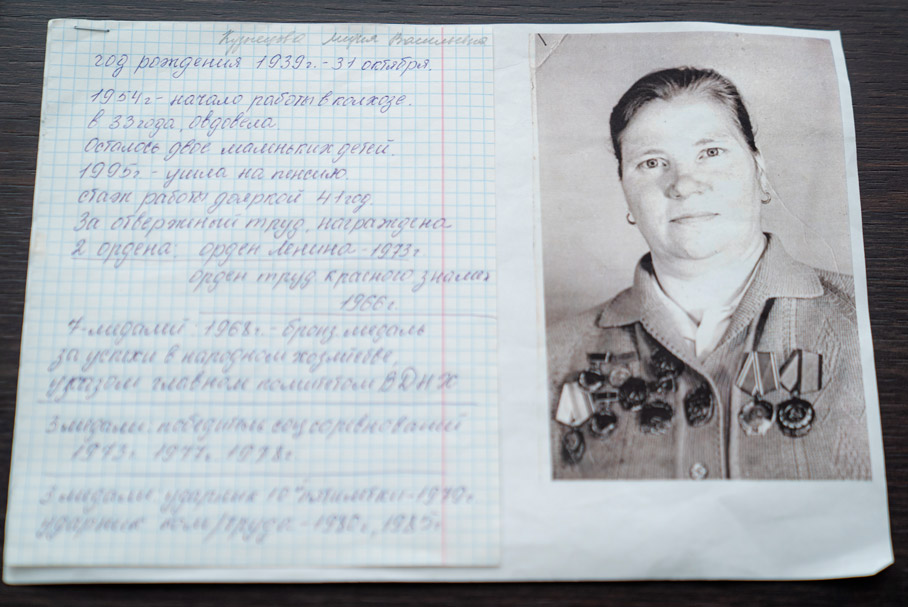 Кузнецова Мария Васильевна
год рождения 1939г. - 31 октября.
1954г - начало работы в колхозе.
в 33 года, овдовела.
Осталось двое маленьких детей.
1995г - ушла на пенсию.
стаж работы дояркой 41 год.
За отверженый труд, награждена
2 ордена. орден Ленина - 1973г
орден труд. красного знамя
1966г.
7-медалий 1968г. - бронз. медаль
за успехи в народном хозяйстве,
указом главном комитетом ВДНХ
3 медали победитель соцсоревнований
1973г. 1977г. 1978г.
3 медали ударник 10ой пятилетки - 1979г.
ударник ком/труда - 1980г, 1985г